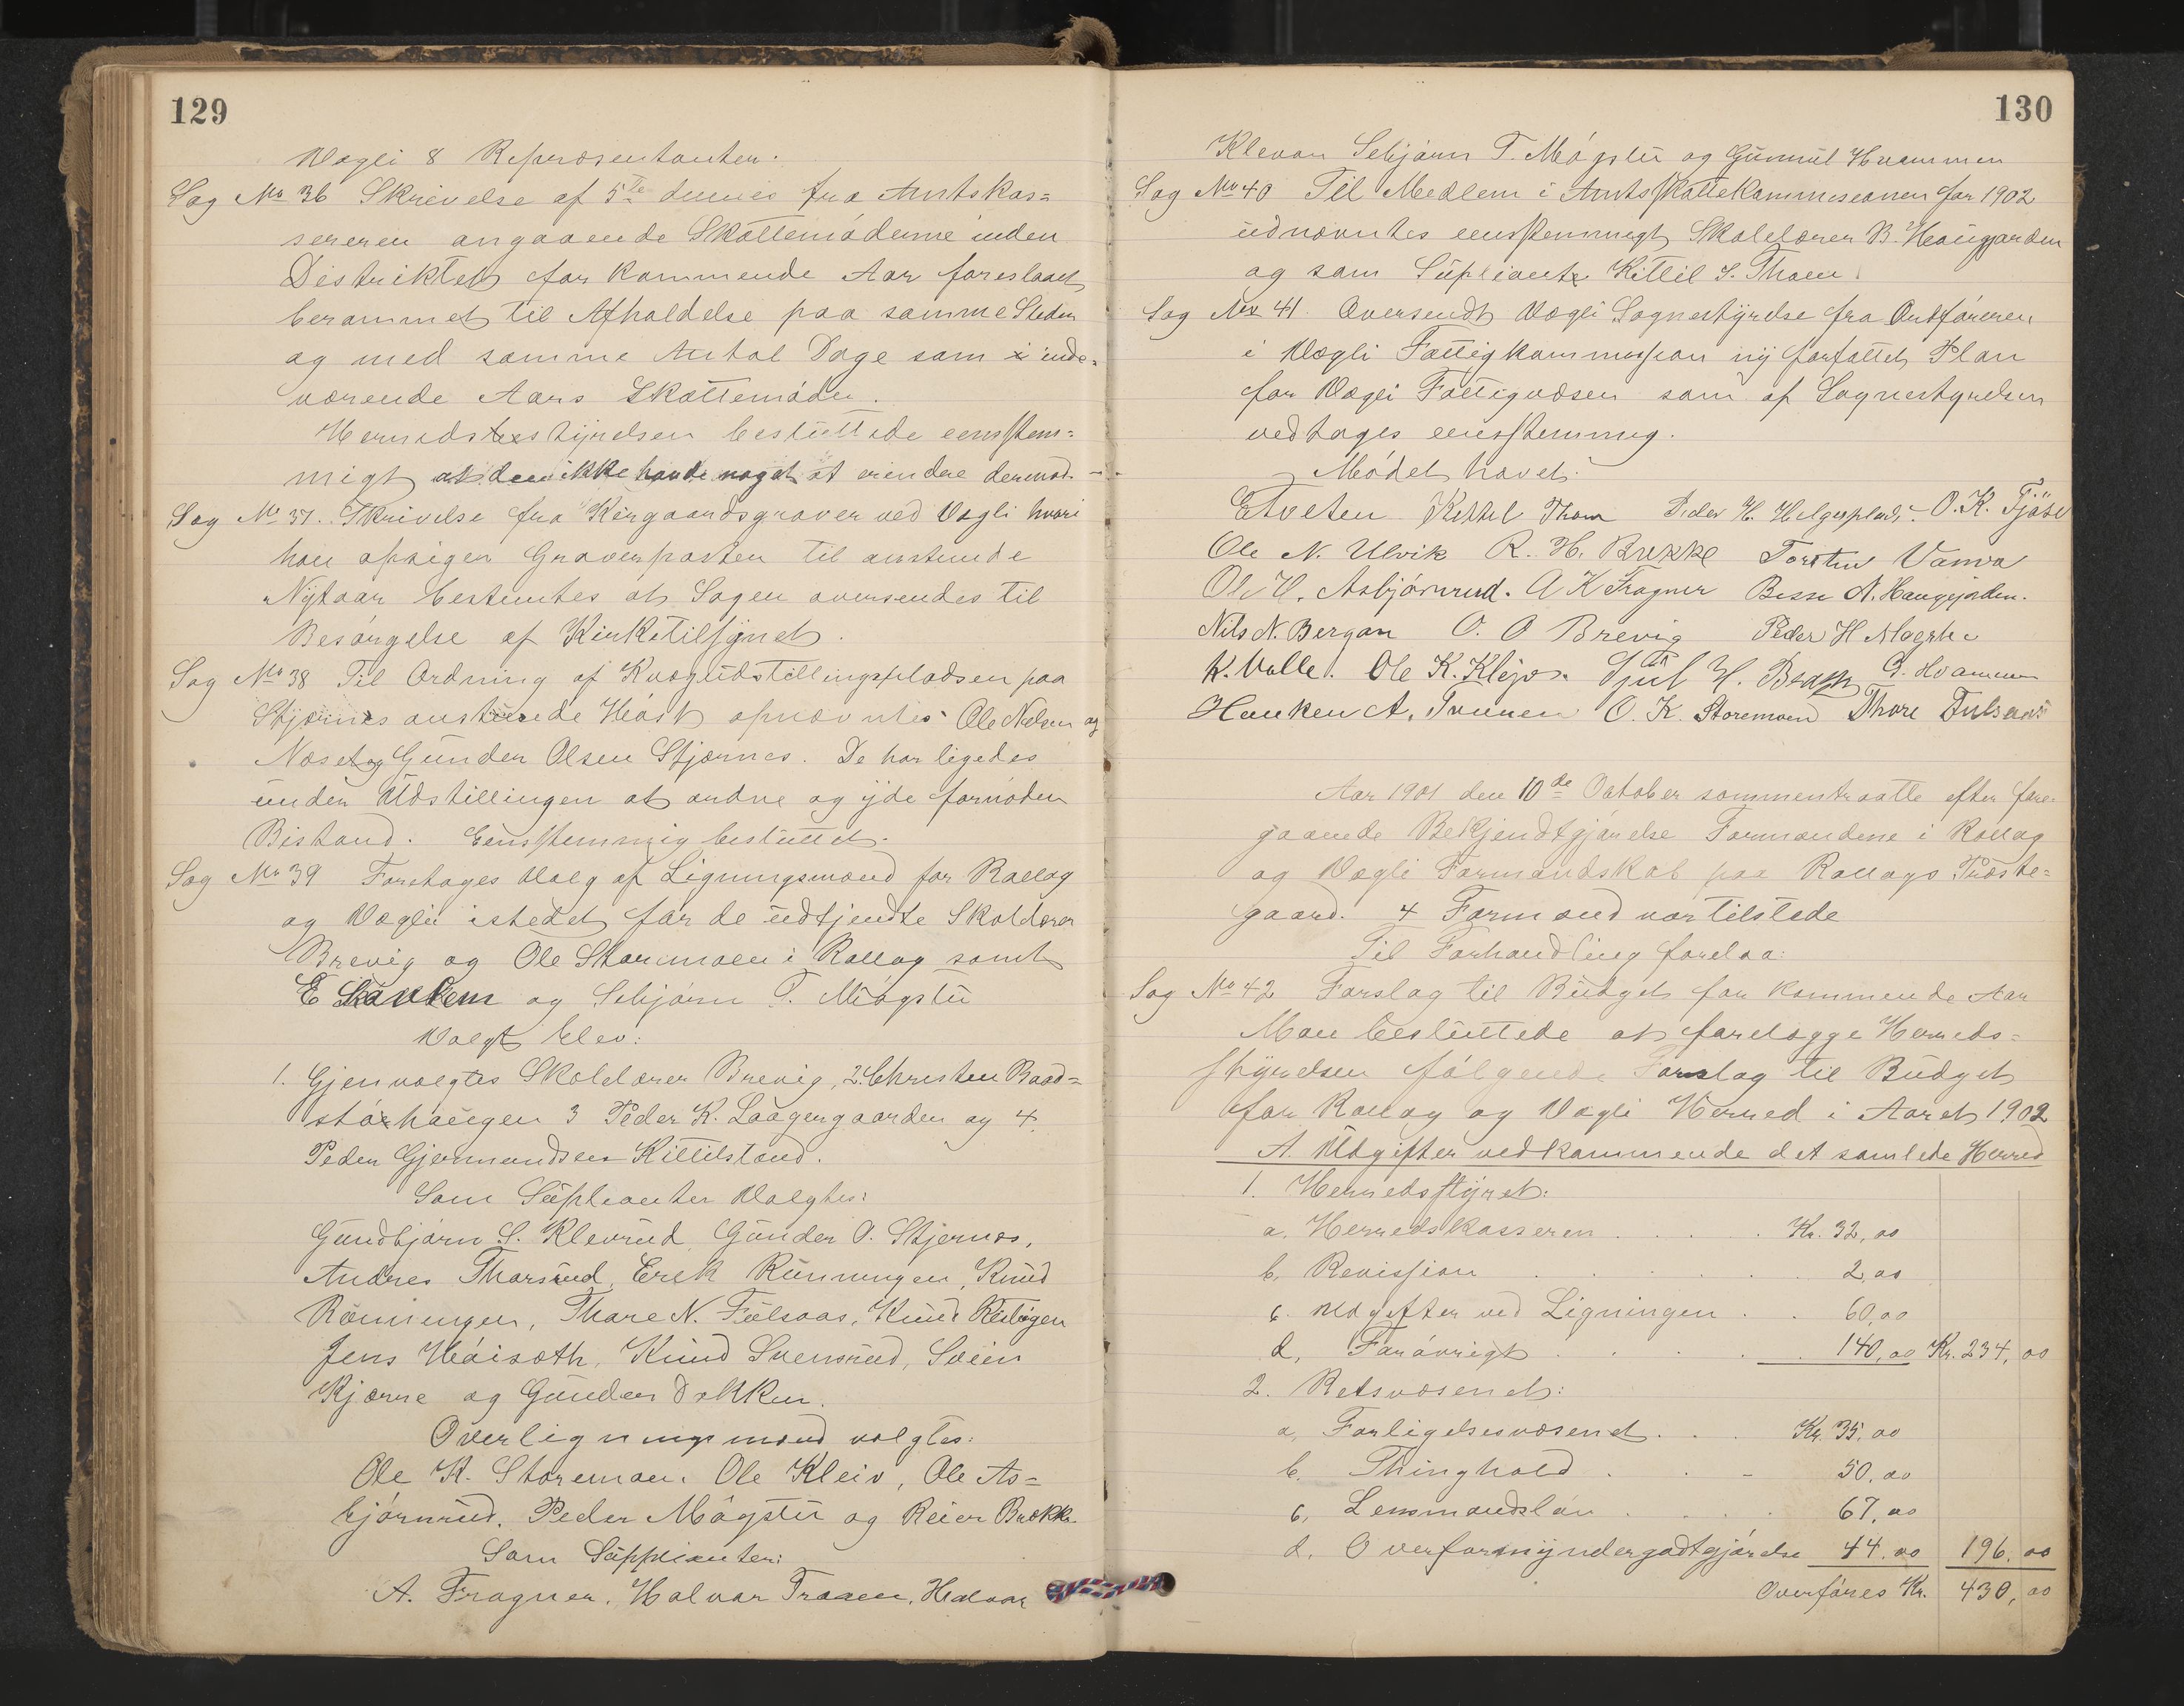 129
Vægli 8 Repræsentanter.
Sag No 36 Skrivelse af 5te dennes fra Amtskas=
sereren angaaende Skattemøderne inden
Distriktet for kommende Aar foreslaaet
berammet til Afholdelse paa samme Steder
og med samme Antal Dage som i inde=
værende Aars Skattemøder.
Herredsbestyrelsen besluttede eensstem=
migt at den ikke havde noget at erindre dermod.
Sag No 37. Skrivelse fra Kirgaardsgraver ved Vægli hvori
han opsiger Graverposten til anstunde
Nytaar bestemtes at Sagen oversendes til
Besørgelse af Kirketilsynet.
Sag No 38 Til Ordning af Kvægudstillingspladsen paa
Stjærnes anstunde Høst opnævntes Ole Nelsen og
Næset og Gunder Olsen Stjærnes. De har ligedes
under Udstillingen at ordne og yde fornøden
Bistand. Eensstemmig besluttet.
Sag No 39 Foretages Valg af Ligningsmænd for Rollag
og Væglie istedet for de udtjendte Skolelærer
Brevig og Ole Storemoen i Rollag samt
E Skavlem og Sebjørn T. Møgstu
Valgt blev:
1. Gjenvalgtes Skolelærer Brevig, 2. Christen Baad=
størhaugen 3 Peder K. Laagengaarden og 4.
Peder Gjermundsen Kittilsland.
Som Supleanter Valgtes:
Gundbjørn S. Klevrud, Gunder O. Stjernes,
Andres Thorsrud, Erek Runningen, Knud
Rønningen, Thore N. Fulsaas, Knud
Jens Høisæth, Knud Svensrud, Svein
Kjærre og Gunder Dokken.
Overligningsmænd valgtes:
Ole K. Storemoen. Ole Kleiv, Ole As=
bjørnrud. Peder Møgstu og Reier Brække.
Som Suppleanter:
A. Fragner, Halvor Traaen, Halvor
130
Klevan Sebjørn T. Møgstu og Gunnul Hvammen
Sag No 40 Til Medlem i Amtsskattekommissionen for 1902
udnævntes eensstemmigt Skolelærer B. Haugjorden
og som Supleant Kittil S. Thoen.
Sag No 41. Oversendt Vægli Sognestyrelse fra Ordføreren
i Vægli Fattigkommission ny forfattet Plan
for Vægli Fattigvæsen som af Sognestyrelsen
vedtages eensstemmig.
Mødet hævet.
ETveten Kittil Thoen Peder H. Helgesplads. O. K. Fjøse
Ole N. Ulvik R. H. Brække Torsten
Ole H. Asbjørnrud. A K Fragner Besse N. Haugjorden.
Nils N. Bergan O. O Brevig Peder H Møgstu
K. Valle. Ole K. Kleiv. Gjul H. G. Hvammen
Haaken A. O. K. Storemoen Thore Fulsaas
Aar 1901 den 10de October sammentraatte efter fore=
gaaende Bekjendtgjørelse Formændene i Rollag
og Vægli Formandskab paa Rollags Præste=
gaard. 4 Formænd var tilstede
Til Forhandling forelaa:
Sag No 42 Forslag til Budget for kommende Aar
Man besluttede at forelægge Herreds=
styrelsen følgende Forslag til Budget
for Rollag og Vægli Herred i Aaret 1902
A. Udgifter vedkommende det samlede Herred
1. Herredsstyret:
a. Herredskasseren . . . . Kr. 32,00
b. Revission . . . . . 2,00
c. Udgifter ved Ligningen . . 60,00
d. Forøvrigt . . . . . 140,00 Kr. 234,00
2. Retsvæsenet:
a. Forligelsesvæsenet . . . Kr. 35,00
b. Thinghold . . - 50,00
c. Lensmandsløn . . . . 67,00
d. Overformyndergodtgjørelse 44,00 196,00
Overføres Kr. 430,00